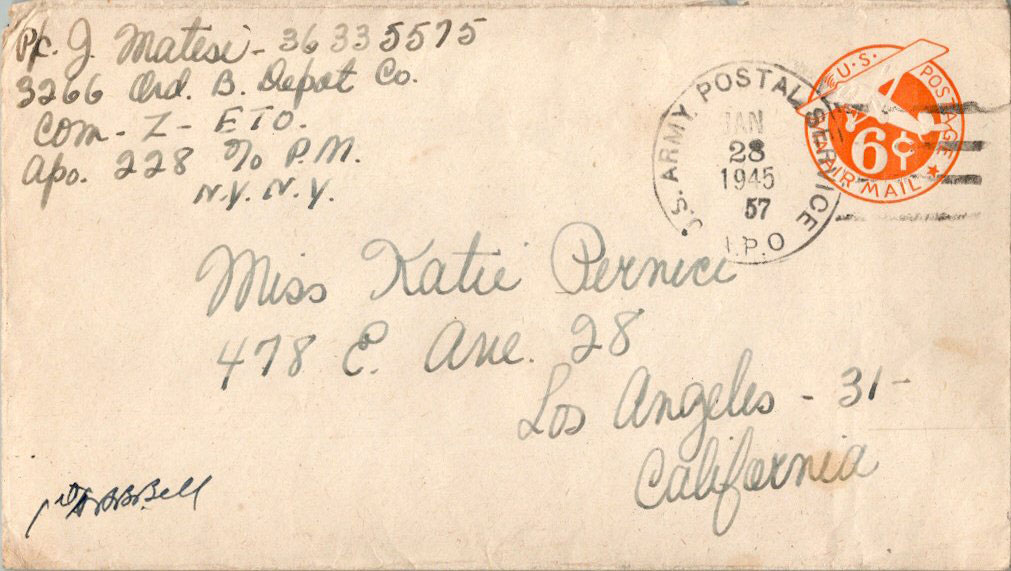 Pfc. J. Matesi - 36335575
3266 Ord. B. Depot Co.
Com - Z - ETO.
Apo. 228 c/o P.M.
N.Y. N.Y.
U.S. ARMY POSTAL SERVICE
JAN
28
1945
57
A.P.O
U.S. POSTAGE
6¢
AIR MAIL
Miss Katie Pernici
478 E. Ave. 28
Los Angeles - 31 -
California
Bell